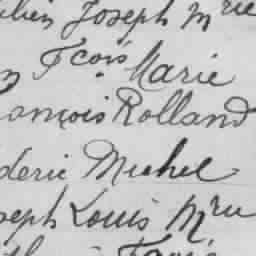 Joseph Mrie
Fcois Marie
ançois Rolland
deric Michel
seph Louis Mrie